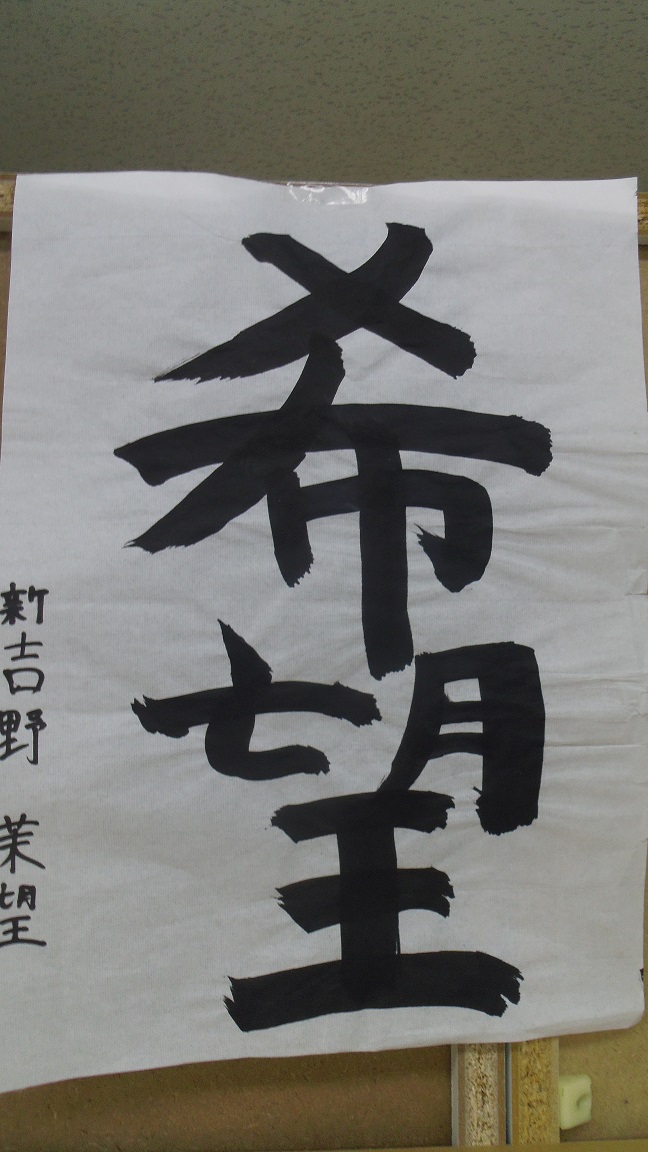 希望
新吉野 茉望